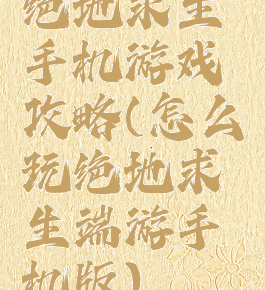 绝地求生
手机游戏
攻略(怎么
玩绝地求
生端游手
机版)